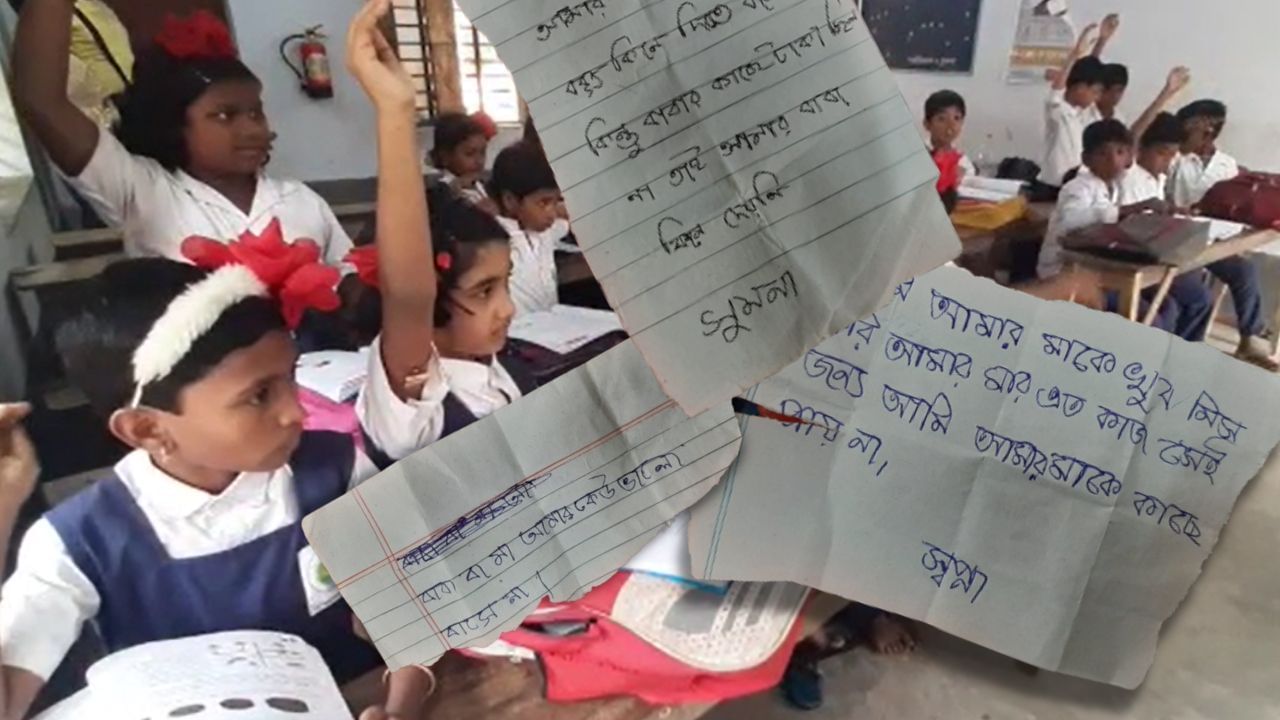 আমার
কিনে দিতে
কিন্তু বাবার কাছে টাকা ছিল
না তাই আমার বাবা
কিনে দেয়নি
সুমনা
আমার মাকে খুব মিস
আমার মার এত কাজ সেই
জন্য আমি আমার মাকে কাছে
পায় না।
স্বপ্না
বাবা বা মা আমার কেউ ভালো
বাসে না।